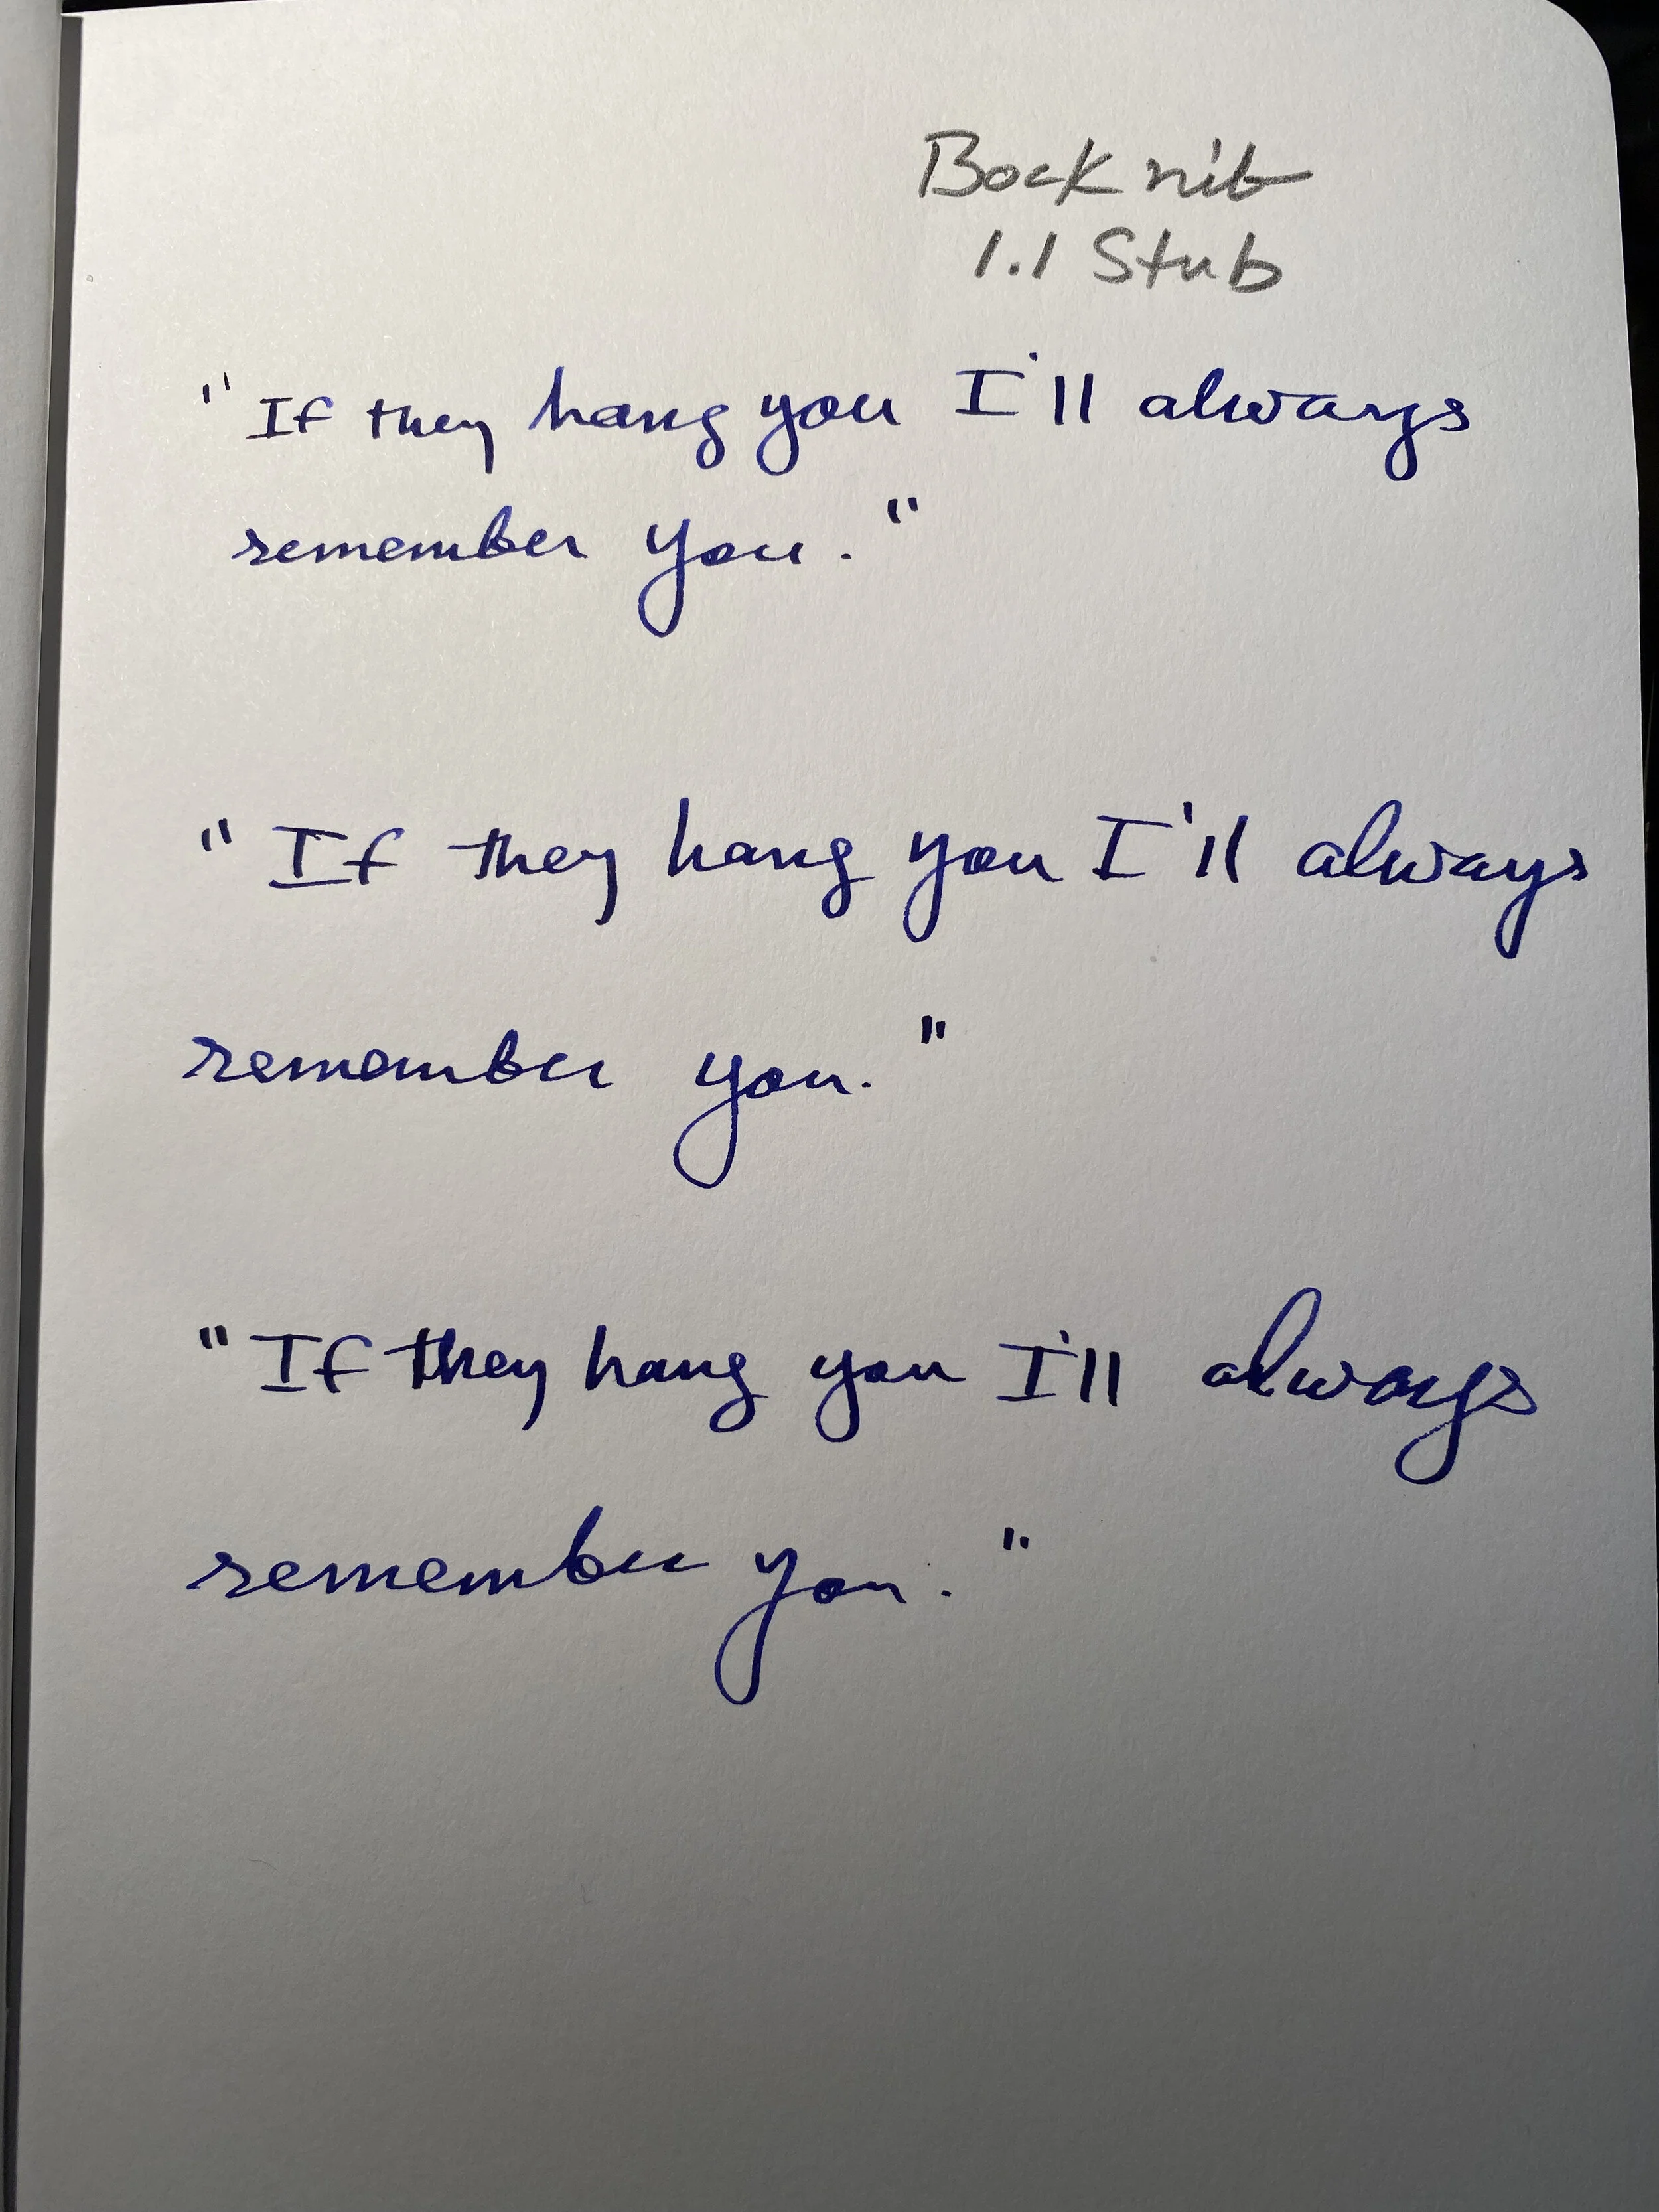 Bock nib
1.1 Stub
"If they hang you I'll always
remember you."
"If they hang you I'll always
remember you."
"If they hang you I'll always
remember you."